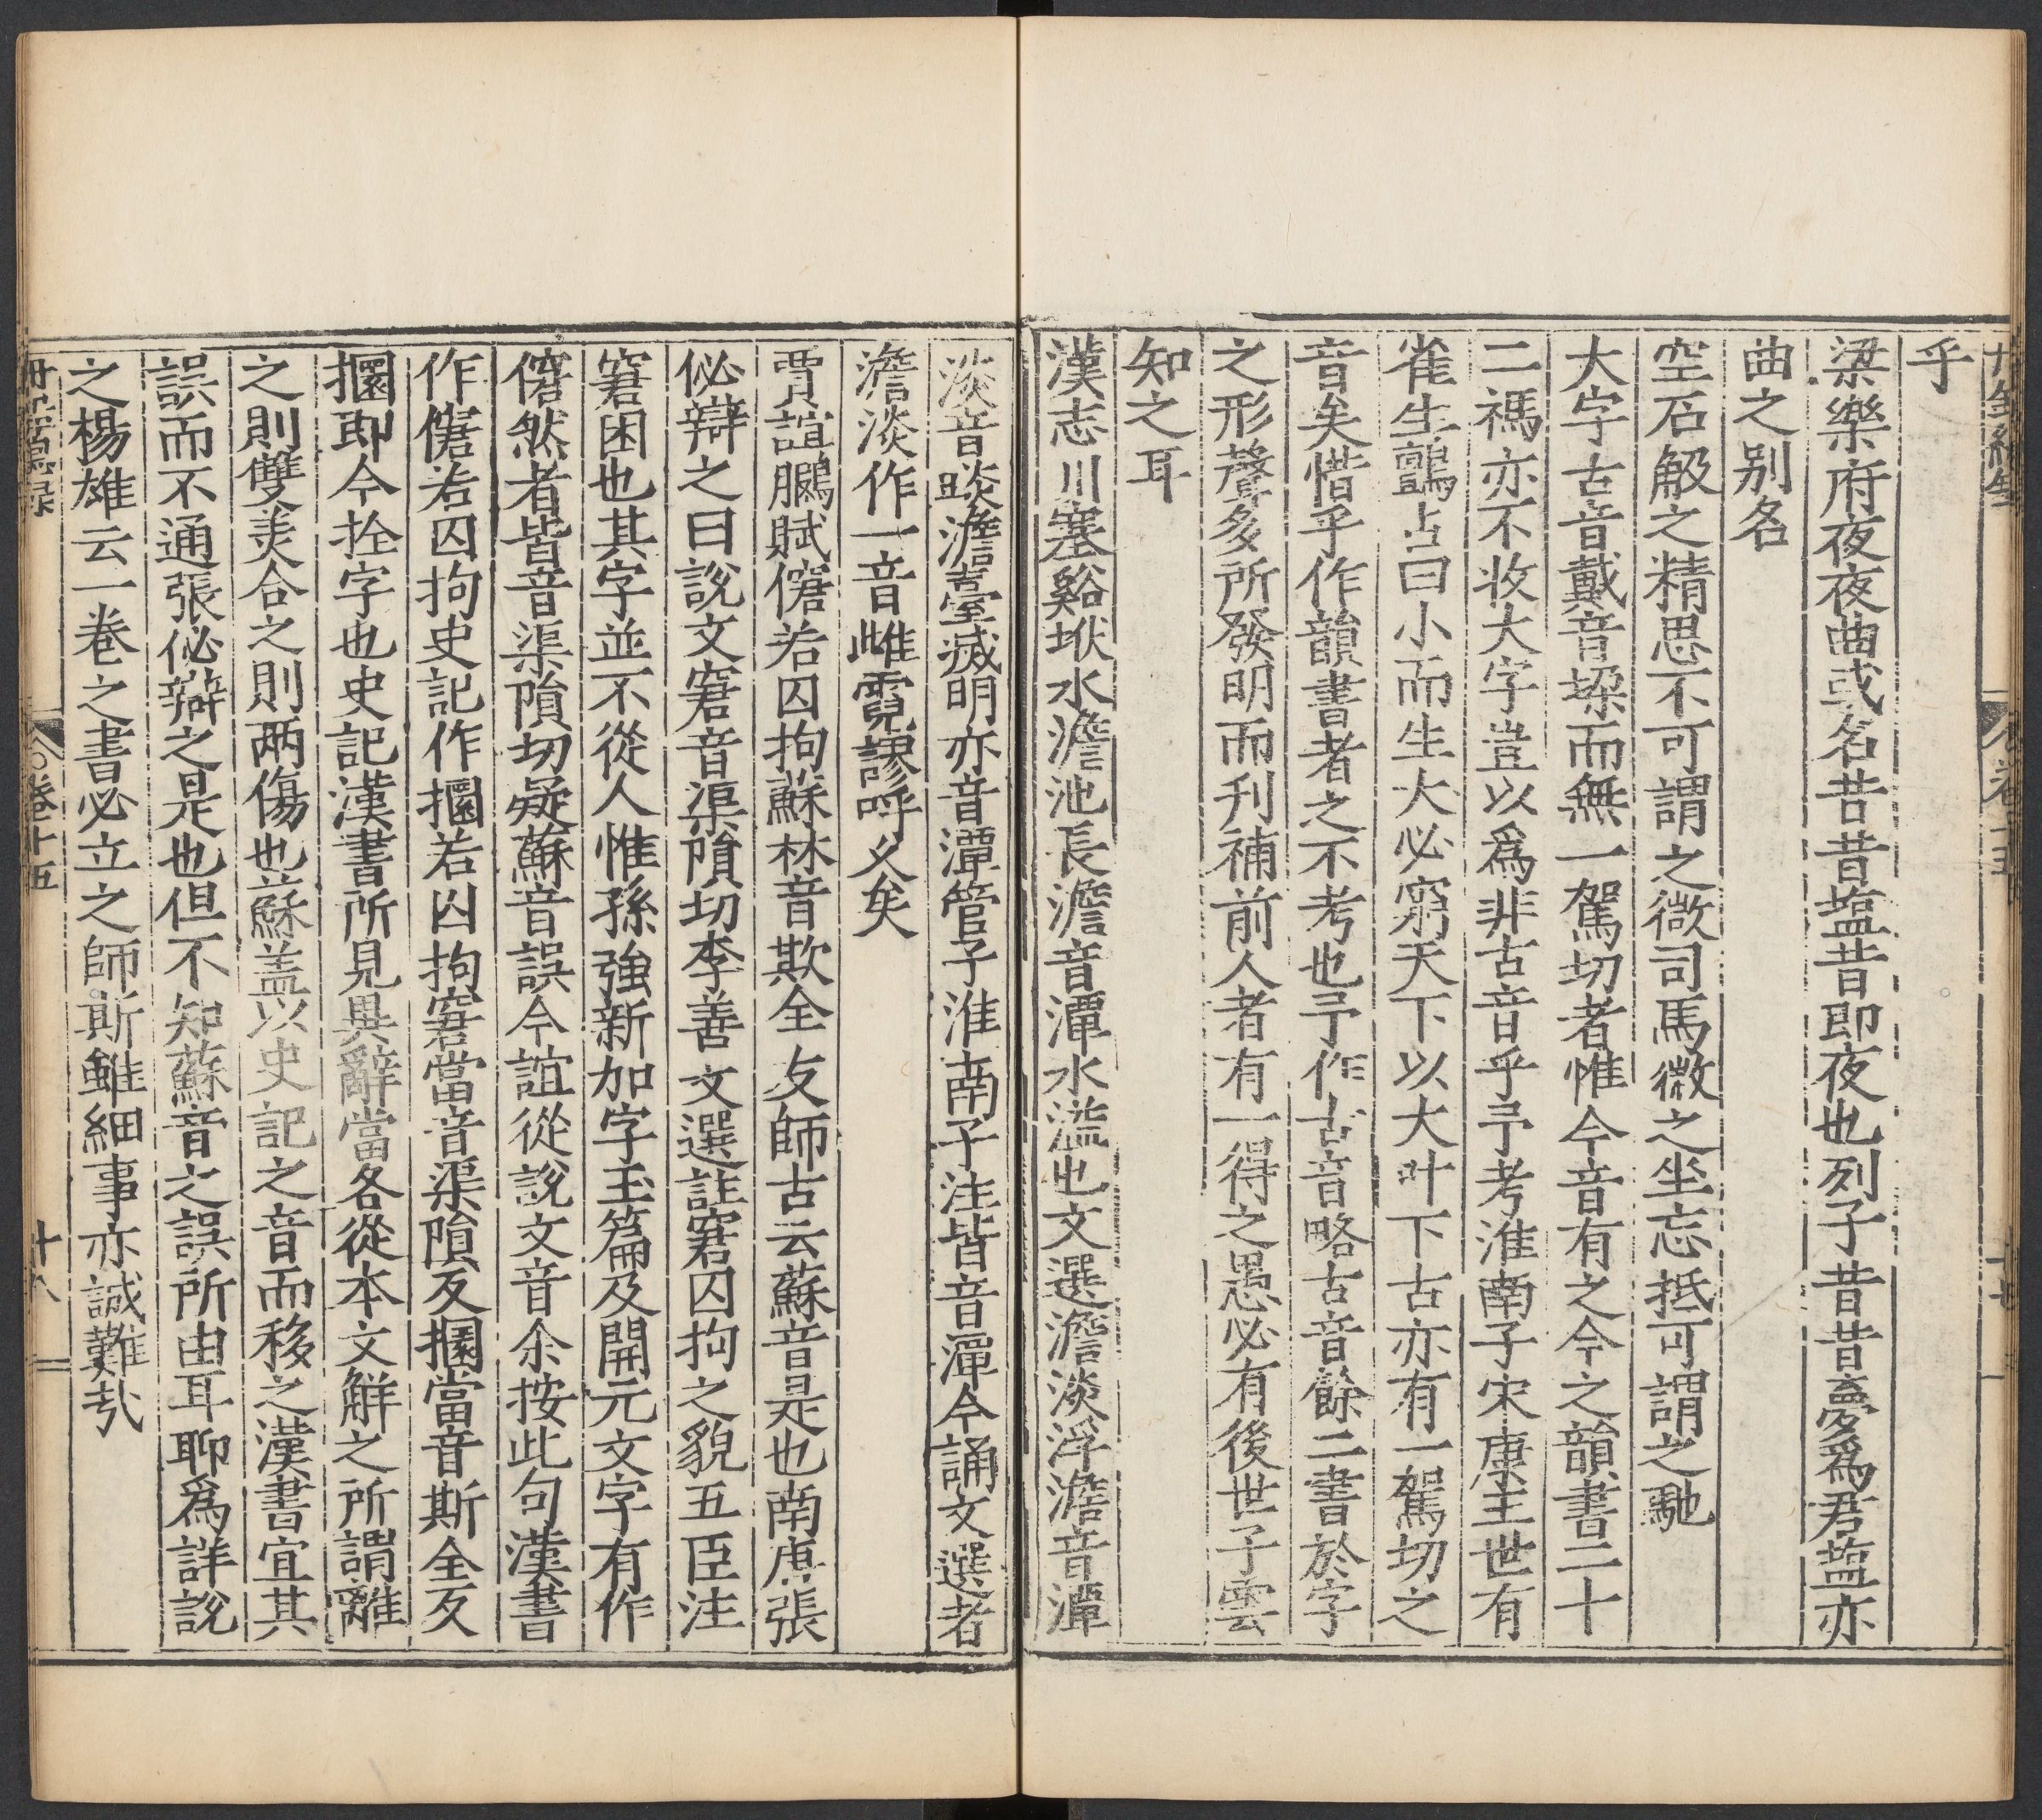 乎
梁樂府夜夜曲或名昔昔塩昔即夜也列子昔昔夢爲君塩亦
曲之别名
空石觙之精思不可謂之微司馬微之坐忘抵可謂之馳
大字古音戴音垜而無一駕切者惟今音有之今之韻書二十
二禡亦不收大字豈以爲非古音乎予考淮南子宋康王世有
雀生鸇占曰小而生大必霸天下以大叶下古亦有一駕切之
音矣惜乎作韻書者之不考也予作古音略古音餘二書於字
之形聲多所發明而刋補前人者有一得之愚必有後世子雲
知之耳
漢志川塞谿垘水澹池長澹音潭水溢也文選澹淡浮澹音潭
淡音啖澹臺滅明亦音潭管子淮南子注皆音潭今誦文選者
澹淡作一音雌霓謬呼乆矣
賈誼鵩賦僒若囚拘蘇林音欺全反師古云蘇音是也南唐張
佖辯之曰說文窘音渠隕切李善文選註窘囚拘之貌五臣注
窘困也其字並不從人惟孫強新加字玉篇及開元文字有作
僒然者皆音渠隕切疑蘇音誤今誼從說文音余按此句漢書
作僒若囚拘史記作攌若囚拘窘當音渠隕反攌當音斯全反
攌即今拴字也史記漢書所見異辭當各從本文觧之所謂離
之則雙美合之則兩傷也蘇盖以史記之音而移之漢書宜其
誤而不通張佖辯之是也但不知蘇音之誤所由耳聊爲詳說
之楊雄云一巷之書必立之師斯雖細事亦誠難㢤
卷十五
十八